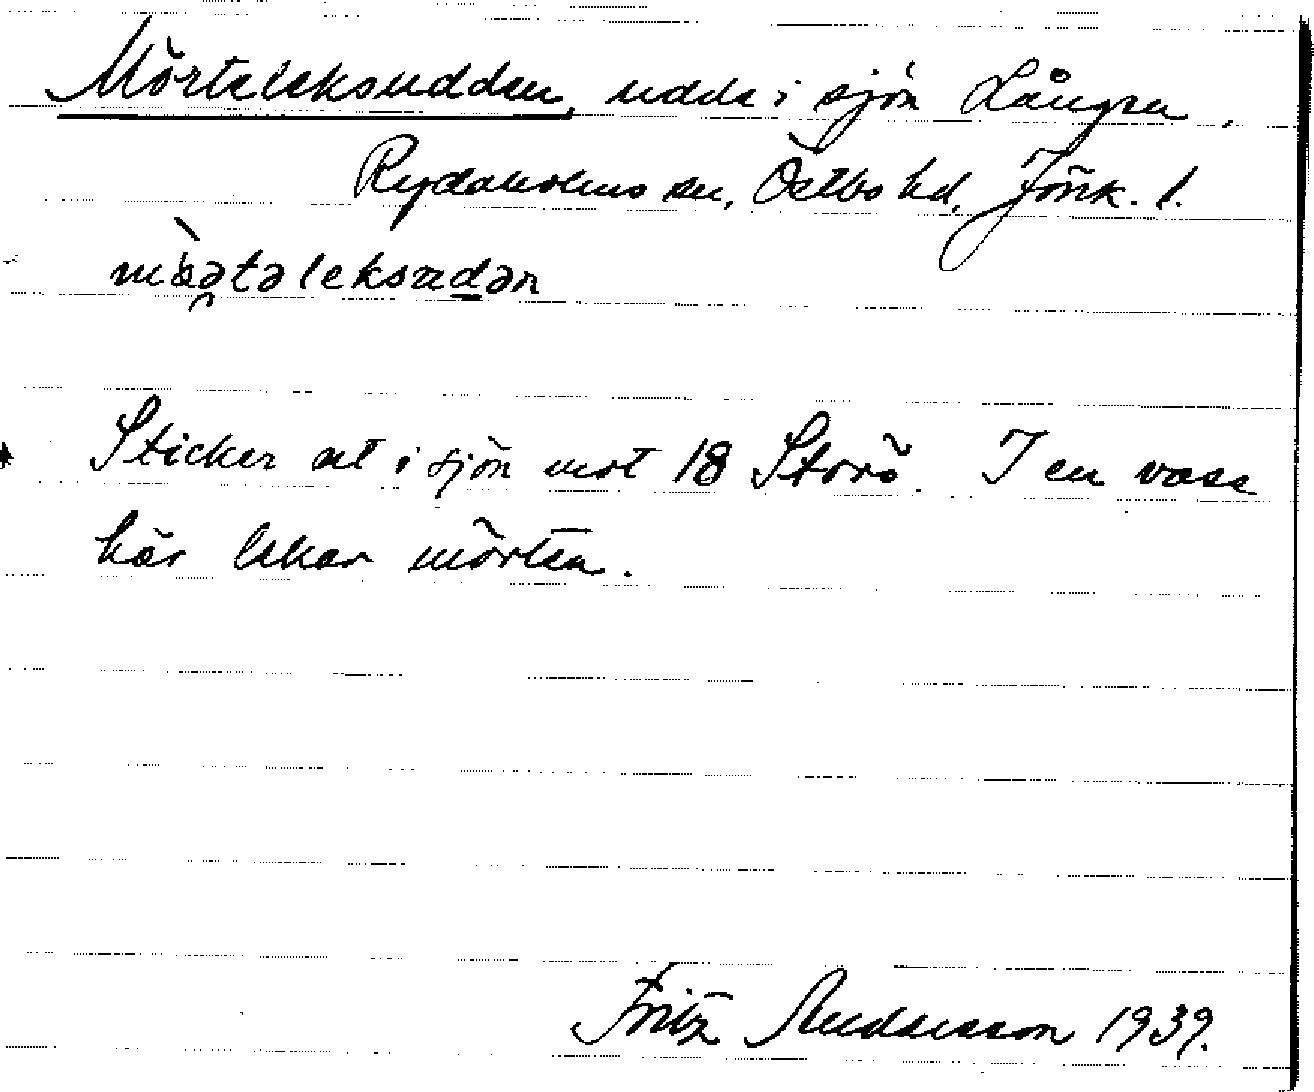 Mörteleksudden, udde i sjön Lången,
Rydaholms sn, Östbo hd, Jönk. l.
Sticker ut i sjön mot 18 Storö. I en vass
här leker mörten.
Fritz Andersson 1939.